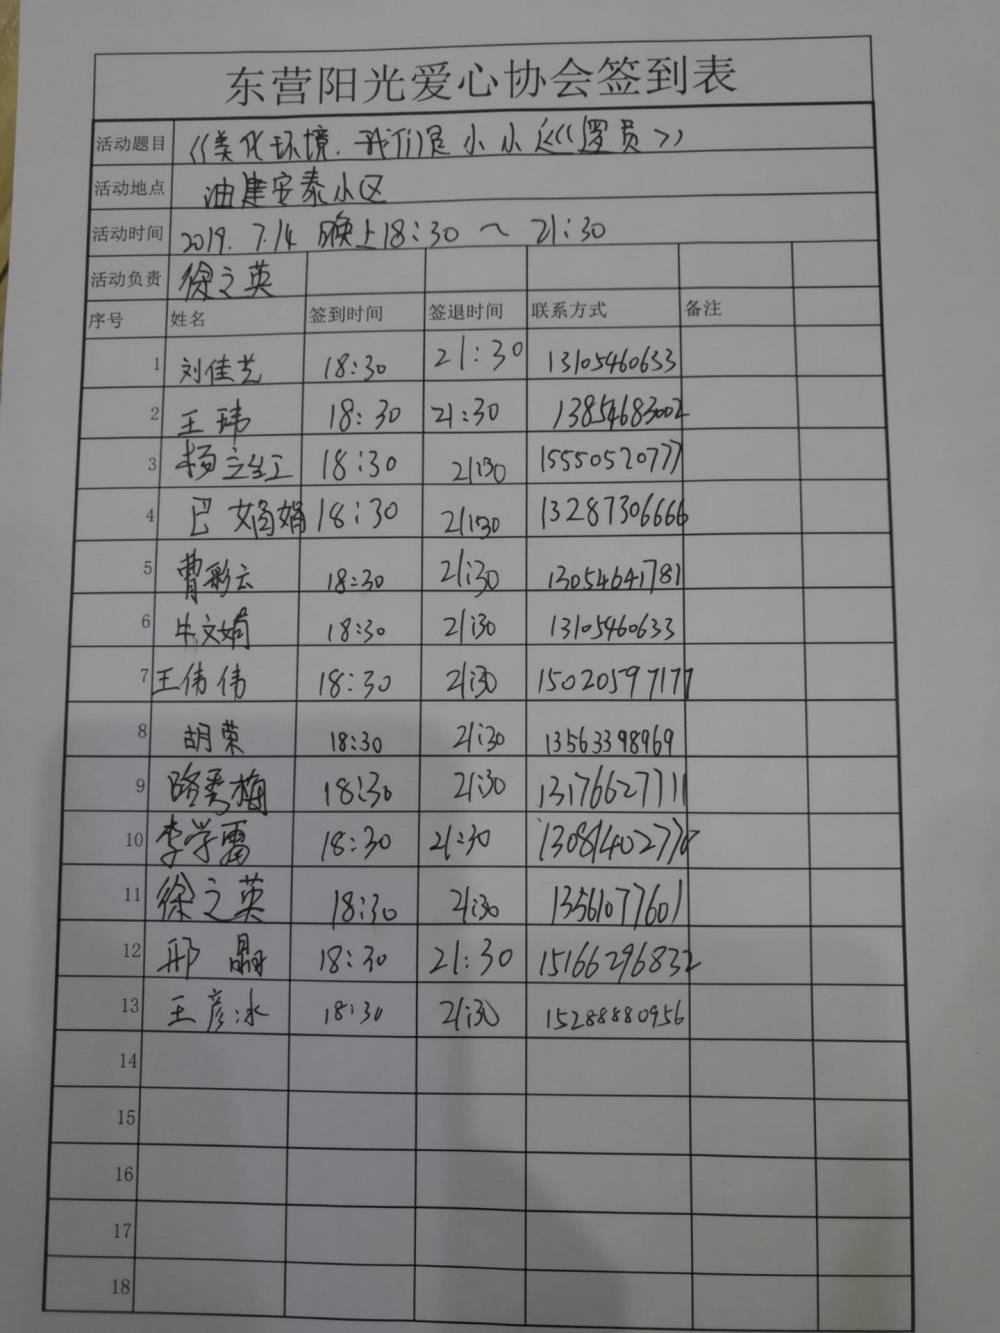 东营阳光爱心协会签到表
活动题目 《美化环境.我们是小小巡逻员》
活动地点 油建安泰小区
活动时间 2019.7.14 晚上18:30～21:30
活动负责 徐之英
序号 姓名 签到时间 签退时间 联系方式 备注
1 刘佳艺 18:30 21:30 13105460633
2 王玮 18:30 21:30 13854683002
3 杨立红 18:30 21:30 15550520777
4 巴娟娟 18:30 21:30 13287306666
5 曹彩云 18:30 21:30 13054641781
6 牛文娟 18:30 21:30 13105460633
7 王伟伟 18:30 21:30 15020597177
8 胡荣 18:30 21:30 13563398969
9 路秀梅 18:30 21:30 13176627711
10 李学雷 18:30 21:30 13081402770
11 徐之英 18:30 21:30 13561077601
12 邢晶 18:30 21:30 15166296832
13 王彦冰 18:30 21:30 15288880956
14
15
16
17
18